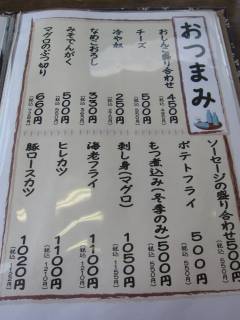 おつまみ
おしんこ盛り合わせ 450円
チーズ 500円
冷や奴 250円
なめこおろし 330円
みそでんがく 500円
マグロのぶつ切り 660円
ソーセージの盛り合わせ 500円
ポテトフライ 500円
もつ煮込み(冬季のみ) 550円
刺し身(マグロ) 1050円
海老フライ 1100円
ヒレカツ 1100円
豚ロースカツ 1020円